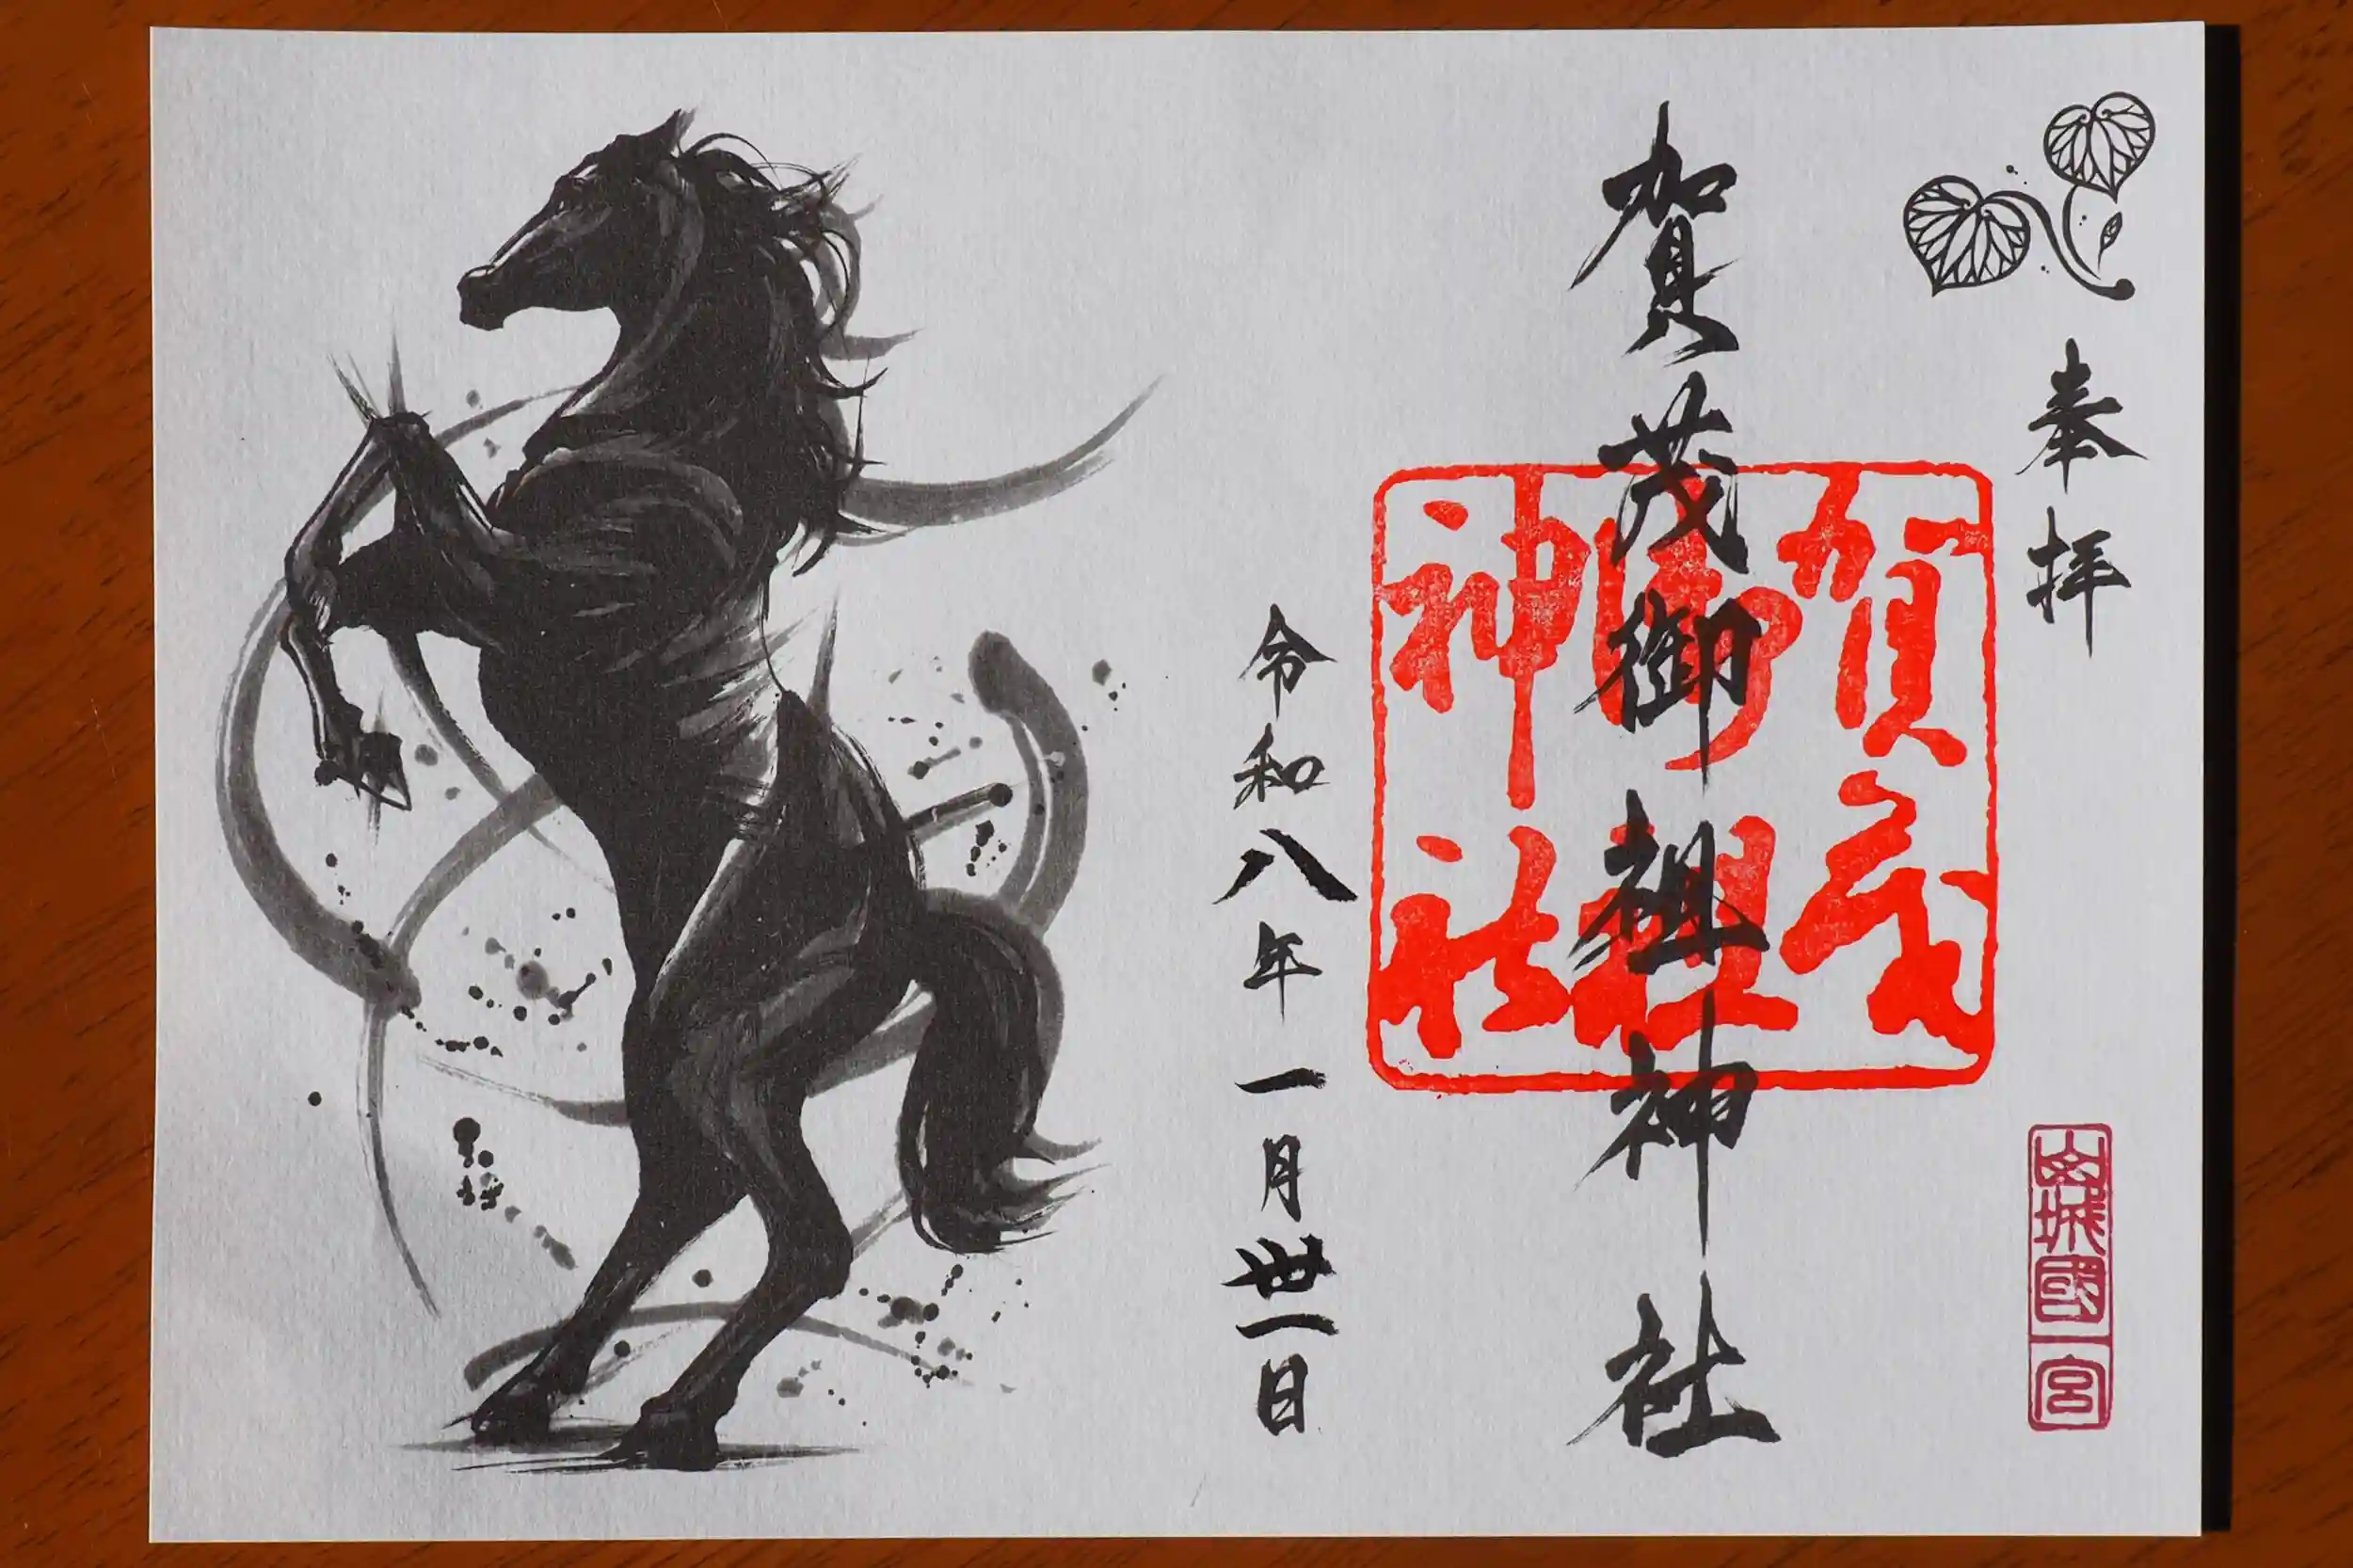 奉拝
山城國一宮
賀茂御祖神社
賀茂
御祖
神社
令和八年一月丗一日